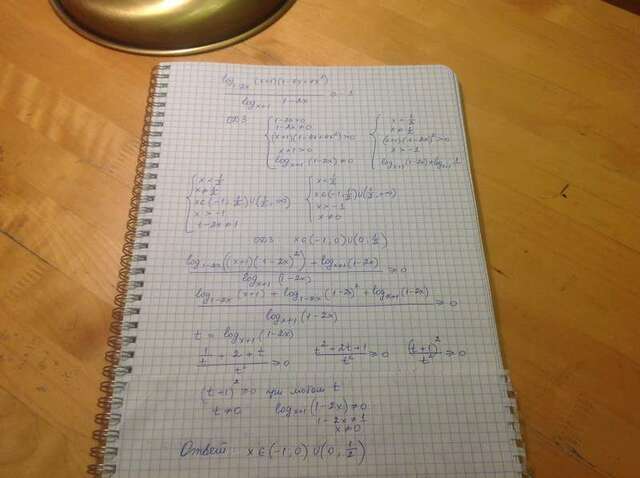 log₁₋₂ₓ (x+1)(1-4x+4x²)
logₓ₊₁ 1-2x
ОДЗ { 1-2x>0 { x<1/2
1-2x≠0 x≠1/2
(x+1)(1-4x+4x²)>0 (x+1)(1-2x)²>0
x+1>0 x>-1
logₓ₊₁(1-2x)≠0 logₓ₊₁(1-2x)≠logₓ₊₁1
{ x<1/2 { x<1/2
x≠1/2 x∈(-1, 1/2)∪(1/2, +∞)
x∈(-1, 1/2)∪(1/2, +∞) x>-1
x>-1 x≠0
1-2x≠1
ОДЗ x∈(-1, 0)∪(0, 1/2)
(log₁₋₂ₓ((x+1)(1-2x)²) + logₓ₊₁(1-2x)) / logₓ₊₁(1-2x) ≥0
(log₁₋₂ₓ(x+1) + log₁₋₂ₓ(1-2x)² + logₓ₊₁(1-2x)) / logₓ₊₁(1-2x) ≥0
t = logₓ₊₁(1-2x)
(t²+2t+1)/t² ≥0 (t+1)²/t² ≥0
(t+1)²≥0 при любом t
t≠0 logₓ₊₁(1-2x)≠0
1-2x≠1
x≠0
Ответ: x∈(-1, 0)∪(0, 1/2)